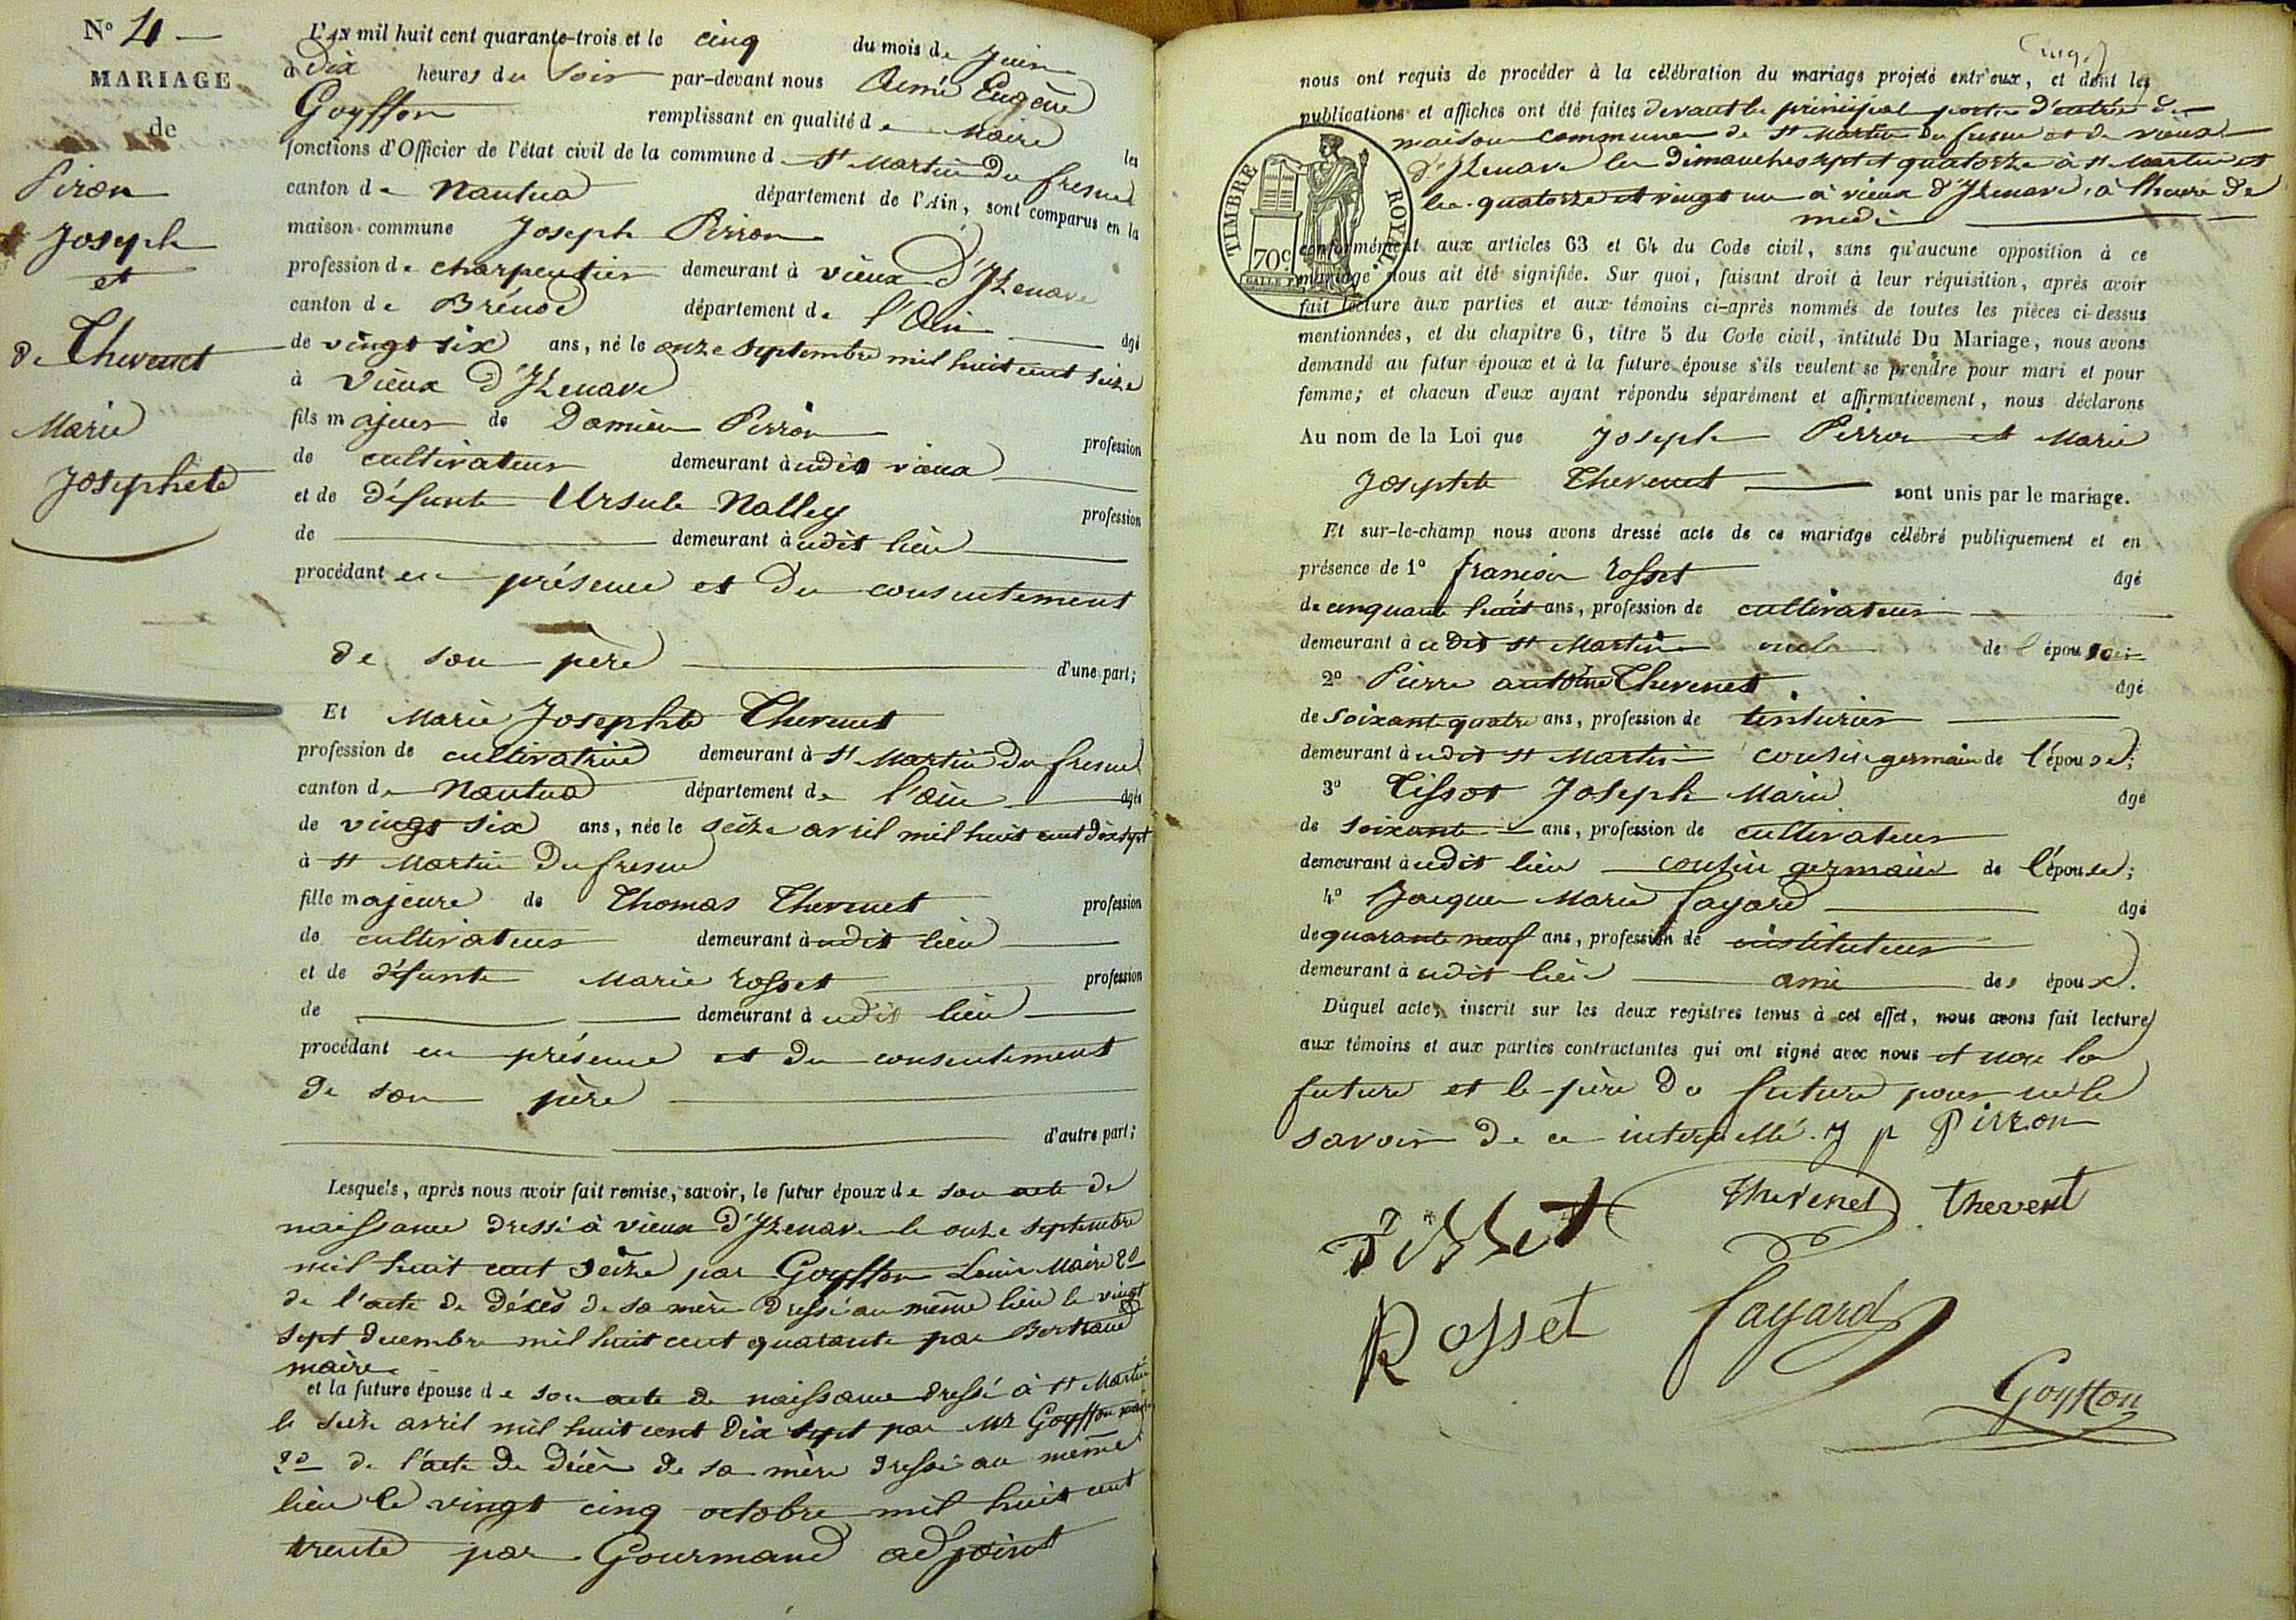 N° 4
MARIAGE
de
Piron
Joseph
et
de Thevenet
Marie
Josephete
L'AN mil huit cent quarante-trois et le cinq du mois de Juin
à dix heures du soir par-devant nous Aimé Eugène
Goyffon remplissant en qualité de Maire les
fonctions d'Officier de l'état civil de la commune d St Martin du fresne
canton de Nantua département de l'Ain, sont comparus en la
maison commune Joseph Pirron
profession de charpentier demeurant à vieux d'Izenave
canton de Brénod département de l'Ain âgé
de vingt six ans, né le onze septembre mil huit cent seize
à Vieux d'Izenave
fils majeur de Damien Pirron profession
de cultivateur demeurant àudit vieux
et de défunte Ursule Nalley profession
de demeurant àudit lieu
procédant en présence et du consentement
de son père d'une part;
Et Marie Josephte Thevenet
profession de cultivatrice demeurant à St Martin du fresne
canton de Nantua département de l'ain âgée
de vingt six ans, née le seize avril mil huit cent dix sept
à St Martin du fresne
fille majeure de Thomas Thevenet profession
de cultivateur demeurant àudit lieu
et de défunte Marie Rosset profession
de demeurant à udit lieu
procédant en présence et du consentement
de son père
d'autre part;
Lesquels, après nous avoir fait remise, savoir, le futur époux de son acte de
naissance dressé à vieux d'Izenave le onze septembre
mil huit cent seize par Goyffon Louis Maire 2°
de l'acte de décès de sa mère dressé au même lieu le vingt
sept decembre mil huit cent quarante par Bertrand
maire
et la future épouse de son acte de naissance dressé à St Martin
le seize avril mil huit cent dix sept par Mr Goyffon maire
2° de l'acte de décès de sa mère dressé au même
lieu le vingt cinq octobre mil huit cent
trente par Gourmand adjoint
cinq
nous ont requis de procéder à la célébration du mariage projeté entr'eux, et dont les
publications et affiches ont été faites devant la principale porte d'entrée de
maison commune de St Martin du fresne et de vieux
d'Izenave les dimanches sept et quatorze à St Martin et
les quatorze et vingt un à vieux d'Izenave, à l'heure de
medi
TIMBRE ROYAL.
70c
conformément aux articles 63 et 64 du Code civil, sans qu'aucune opposition à ce
mariage nous ait été signifiée. Sur quoi, faisant droit à leur réquisition, après avoir
fait lecture aux parties et aux témoins ci-après nommés de toutes les pièces ci-dessus
mentionnées, et du chapitre 6, titre 5 du Code civil, intitulé Du Mariage, nous avons
demandé au futur époux et à la future épouse s'ils veulent se prendre pour mari et pour
femme; et chacun d'eux ayant répondu séparément et affirmativement, nous déclarons
Au nom de la Loi que Joseph Pirron et Marie
Josephte Thevenet sont unis par le mariage.
Et sur-le-champ nous avons dressé acte de ce mariage célébré publiquement et en
présence de 1° françois Rosset âgé
de cinquante huit ans, profession de cultivateur
demeurant à udit St Martin oncle de l épouse
2° Pierre antoine Thevenet âgé
de soixante quatre ans, profession de tinturier
demeurant àudit St Martin cousin germain de l'épouse;
3° Tissot Joseph Marie âgé
de soixante ans, profession de cultivateur
demeurant àudit lieu cousin germain de l'épouse;
4° Jacques Marie fayard âgé
de quarante neuf ans, profession de instituteur
demeurant à udit lieu ami des époux.
Duquel acte, inscrit sur les deux registres tenus à cet effet, nous avons fait lecture
aux témoins et aux parties contractantes qui ont signé avec nous et non la
future et le père du future pour ne le
savoir de ce interpellé. J p Pirron
Tissot Thevenet thevent
Rosset fayard
Goyffon